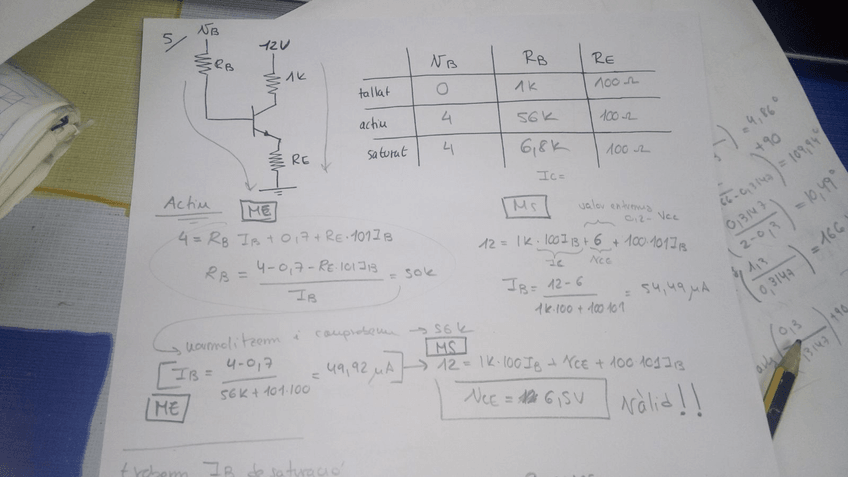 5/
VB
RB
12V
1K
RE
VB RB RE
tallat 0 1K 100Ω
actiu 4 56K 100Ω
saturat 4 6,8K 100Ω
Ic=
Actiu ME
4 = RB IB + 0,7 + RE·101IB
RB = 4-0,7-RE·101IB / IB = 50K
MS
valor entremig
0,2 - Vcc
12 = 1K·100IB + 6 + 100·101IB
Ic VCE
IB = 12-6 / 1K·100 + 100·101 = 54,49 μA
normalitzem i comprobem → 56K
IB = 4-0,7 / 56K + 101·100 = 49,92 μA
ME
MS
12 = 1K·100IB + VCE + 100·101IB
VCE = 6,5V Vàlid!!
trobem IB de saturació
= 4,86°
+90
= 109,94°
0,3147
2-0,7
= 10,49°
1,7
0,3147
= 166
0,3